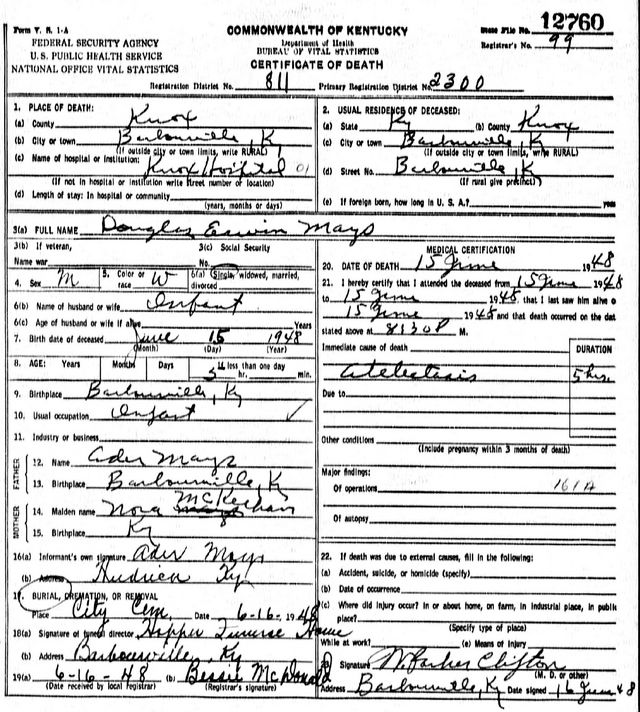 Form V. S. 1-A
COMMONWEALTH OF KENTUCKY
State File No. 12760
FEDERAL SECURITY AGENCY
Department of Health
Registrar's No. 99
U. S. PUBLIC HEALTH SERVICE
BUREAU OF VITAL STATISTICS
NATIONAL OFFICE VITAL STATISTICS
CERTIFICATE OF DEATH
Registration District No. 811 Primary Registration District No. 2300
1. PLACE OF DEATH:
(a) County Knox
(b) City or town Barbourville, Ky
(If outside city or town limits, write RURAL)
(c) Name of hospital or institution: Knox Hospital 01
(If not in hospital or institution write street number or location)
(d) Length of stay: In hospital or community
(years, months or days)
2. USUAL RESIDENCE OF DECEASED:
(a) State Ky (b) County Knox
(c) City or town Barbourville, Ky
(If outside city or town limits, write RURAL)
(d) Street No. Barbourville, Ky
(If rural give precinct)
(e) If foreign born, how long in U. S. A.? yes
3(a) FULL NAME Douglas Erwin Mays
3(b) If veteran, 3(c) Social Security
Name war No.
4. Sex M 5. Color or race W 6(a) Single, widowed, married, divorced
6(b) Name of husband or wife Infant
6(c) Age of husband or wife if alive Years
7. Birth date of deceased June 15 1948
(Month) (Day) (Year)
8. AGE: Years Months Days If less than one day
5 hr. min.
9. Birthplace Barbourville, Ky
10. Usual occupation Infant
11. Industry or business
FATHER
12. Name Ader Mays
13. Birthplace Barbourville, Ky
MOTHER
14. Maiden name Nora McKeehan
15. Birthplace Ky
16(a) Informant's own signature Ader Mays
(b) Address Ky
17. BURIAL, CREMATION, OR REMOVAL
Place City Cem. Date 6-16-1948
18(a) Signature of funeral director Hopper Funeral Home
(b) Address Barbourville, Ky
19(a) 6-16-48 (b) Bessie McDonald
(Date received by local registrar) (Registrar's signature)
MEDICAL CERTIFICATION
20. DATE OF DEATH 15 June 1948
21. I hereby certify that I attended the deceased from 15 June 1948
to 15 June 1948, that I last saw him alive o
15 June 1948 and that death occurred on the dat
stated above at 8:30P M.
Immediate cause of death DURATION
Atelectasis 5 hrs.
Due to
Other conditions
(Include pregnancy within 3 months of death)
Major findings:
Of operations 161A
Of autopsy
22. If death was due to external causes, fill in the following:
(a) Accident, suicide, or homicide (specify)
(b) Date of occurrence
(c) Where did injury occur? In or about home, on farm, in industrial place, in public
place?
(Specify type of place)
While at work? (e) Means of injury
23. Signature W. Parker Clifton
(M. D. or other)
Address Barbourville, Ky Date signed 16 June 48